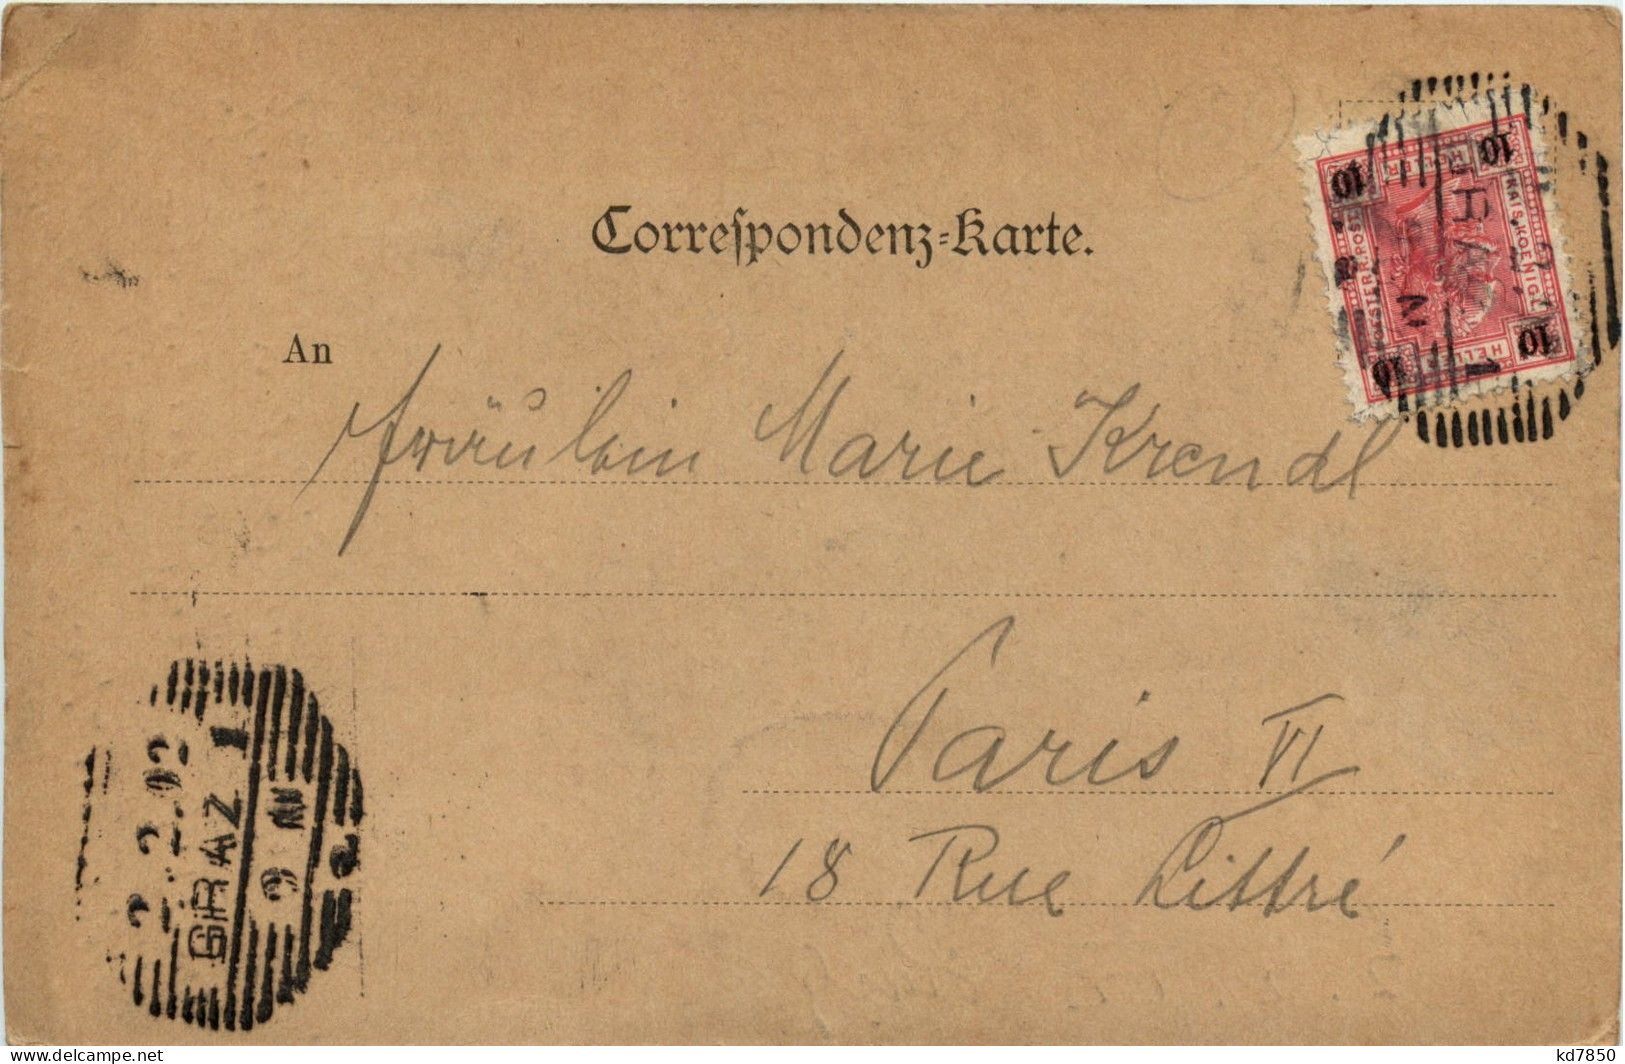 Correſpondenz-Karte.
An
Fräulein Marie Krendl
Paris VI
18 Rue Littré
10 HELLER 10
KAIS. KOENIGL.
OESTERR. POST.
10 HELLER 10
GRAZ 1
2.2.02
GRAZ 1
9 N
delcampe.net
kd7850